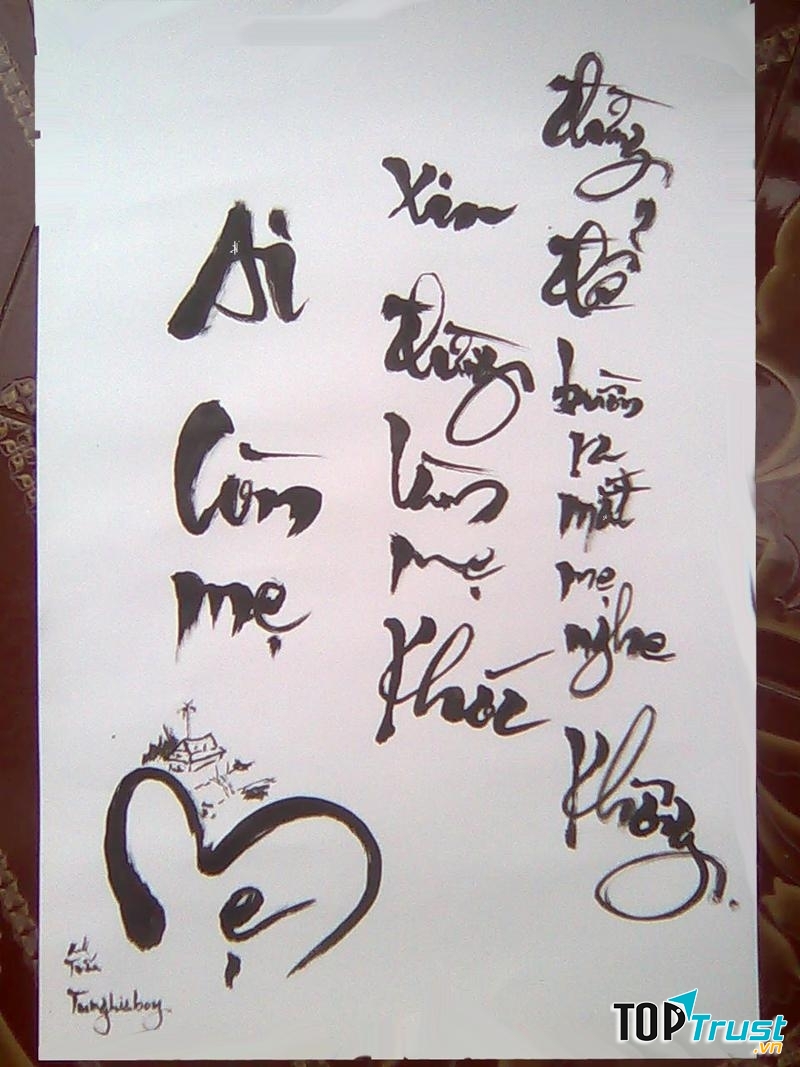 Ai
Còn
mẹ
Xin
đừng
làm
mẹ
Khóc
Đừng
để
buồn
ra
mắt
mẹ
nghe
Không.
Mẹ
TOPTrust.vn